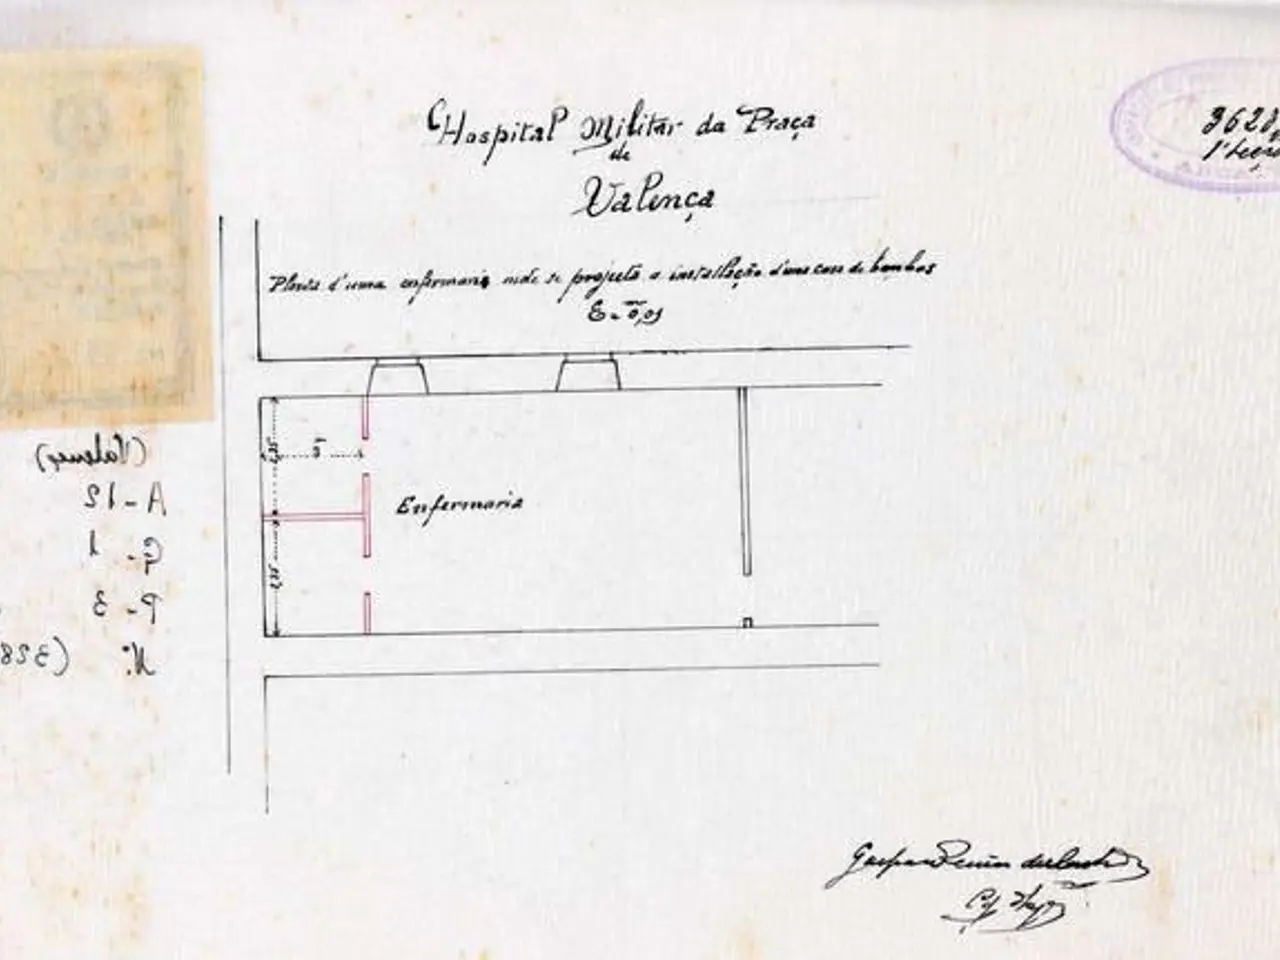 Hospital Militar da Praça
de
Valença
Planta d'uma enfermaria onde se projecta a installação d'uma casa de banhos
E = 0,01
3628
Enfermaria
(Valença)
A-12
G-1
P-3
N.º (328
Gaspar